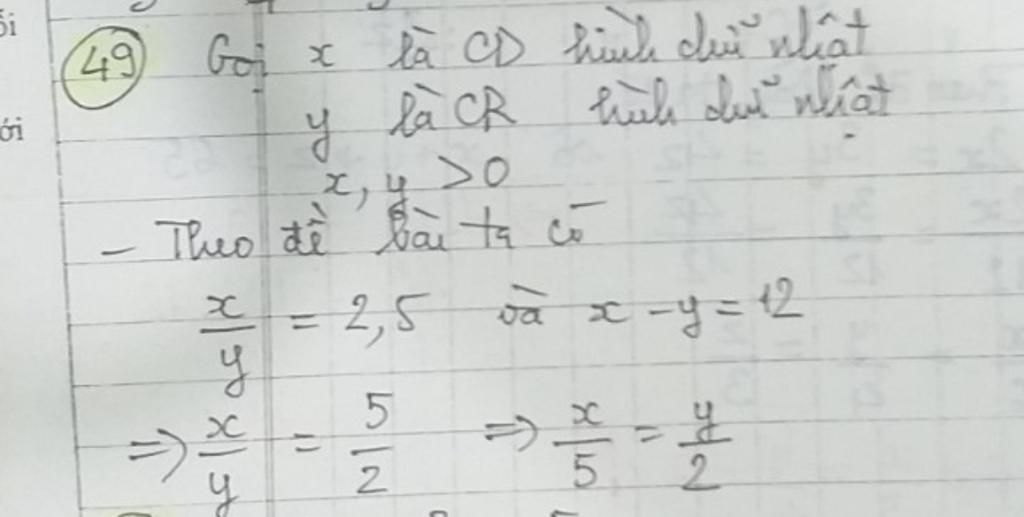 ối
49 Gọi x là CD hình chữ nhật
y là CR hình chữ nhật
ới
x, y > 0
- Theo đề bài ta có
x/y = 2,5 và x - y = 12
=> x/y = 5/2 => x/5 = y/2